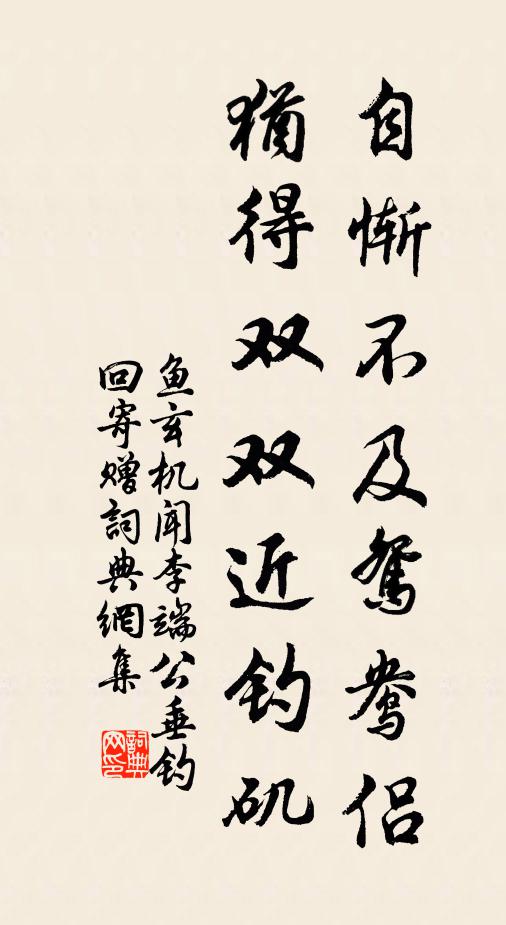 自惭不及鸳鸯侣
猶得双双近钓矶
鱼玄机闻李端公垂钓
回寄赠詞典網集
詞典
网印